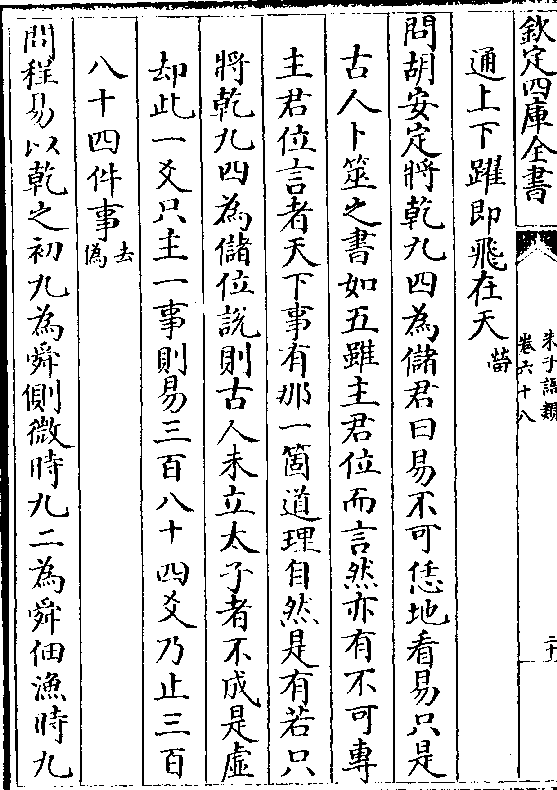 欽定四庫全書
朱子語類
卷六十八
二十
通上下躍即飛在天䕫
問胡安定將乾九四為儲君曰易不可恁地看易只是
古人卜筮之書如五雖主君位而言然亦有不可專
主君位言者天下事有那一箇道理自然是有若只
將乾九四為儲位說則古人未立太子者不成是虛
却此一爻只主一事則易三百八十四爻乃止三百
八十四件事去偽
問程易以乾之初九為舜側微時九二為舜佃漁時九